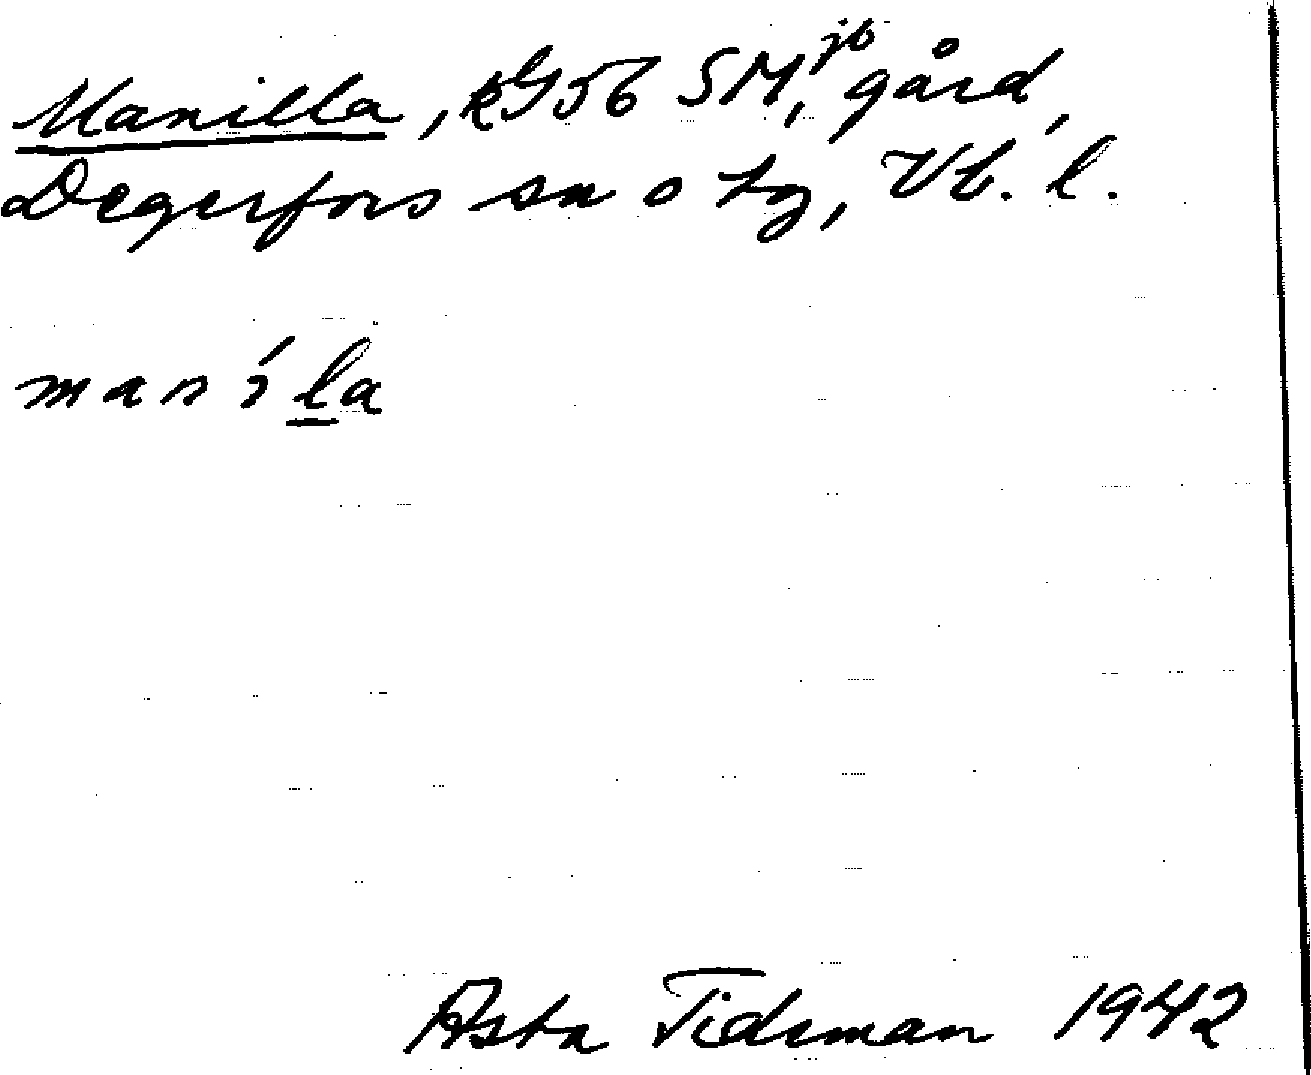 Manilla, RG56 SM, jb gård,
Degerfors sn o tg, Vb. l.
manílа
Asta Tidsman 1942